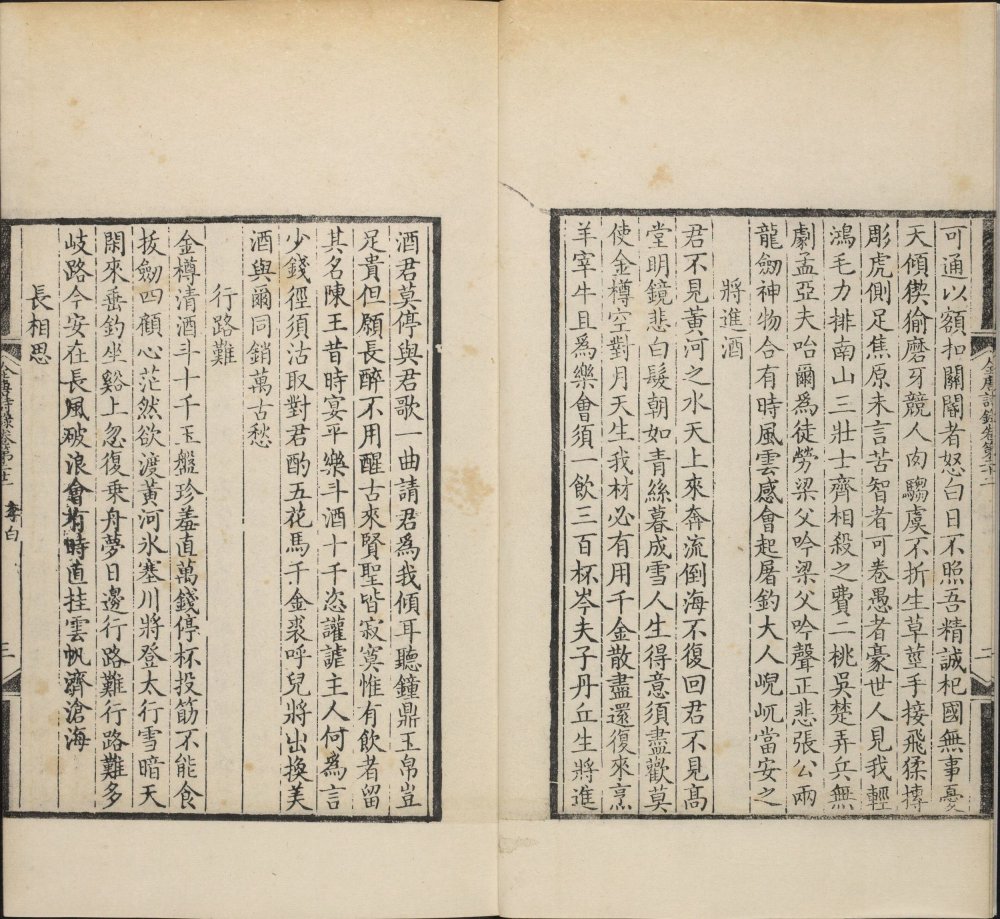 可通以額扣關閽者怒白日不照吾精誠杞國無事憂
天傾猰貐磨牙競人肉騶虞不折生草莖手接飛猱摶
彫虎側足焦原未言苦智者可卷愚者豪世人見我輕
鴻毛力排南山三壯士齊相殺之費二桃吳楚弄兵無
劇孟亞夫咍爾為徒勞梁父吟梁父吟聲正悲張公兩
龍劒神物合有時風雲感會起屠釣大人峴屼當安之
將進酒
君不見黃河之水天上來奔流倒海不復回君不見高
堂明鏡悲白髮朝如青絲暮成雪人生得意須盡歡莫
使金樽空對月天生我材必有用千金散盡還復來烹
羊宰牛且爲樂會須一飲三百杯岑夫子丹丘生將進
二
酒君莫停與君歌一曲請君爲我傾耳聽鐘鼎玉帛豈
足貴但願長醉不用醒古來賢聖皆寂寞惟有飲者留
其名陳王昔時宴平樂斗酒十千恣讙謔主人何爲言
少錢徑須沽取對君酌五花馬千金裘呼兒將出換美
酒與爾同銷萬古愁
行路難
金樽清酒斗十千玉盤珍羞直萬錢停杯投筯不能食
拔劒四顧心茫然欲渡黃河冰塞川將登太行雪暗天
閑來垂釣坐谿上忽復乘舟夢日邊行路難行路難多
岐路今安在長風破浪會有時直挂雲帆濟滄海
長相思
李白
三